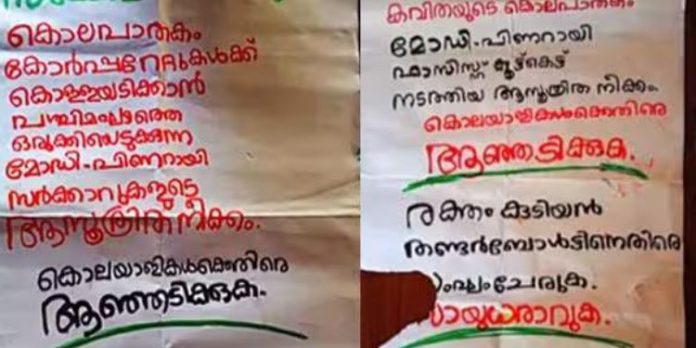 കൊലപാതകം
കോർപ്പറേറ്റുകൾക്ക്
കൊള്ളയടിക്കാൻ
പശ്ചിമഘട്ടത്തെ
ഒരുക്കിയെടുക്കുന്ന
മോഡി-പിണറായി
സർക്കാറുകളുടെ
ആസൂത്രിത നീക്കം.
കൊലയാളികൾക്കെതിരെ
ആഞ്ഞടിക്കുക.
കവിതയുടെ കൊലപാതകം
മോഡി-പിണറായി
ഫാസിസ്റ്റ് കൂട്ടുകെട്ട്
നടത്തിയ ആസൂത്രിത നീക്കം.
കൊലയാളികൾക്കെതിരെ
ആഞ്ഞടിക്കുക.
രക്തം കുടിയൻ
തണ്ടർബോൾട്ടിനെതിരെ
ചേരുക.